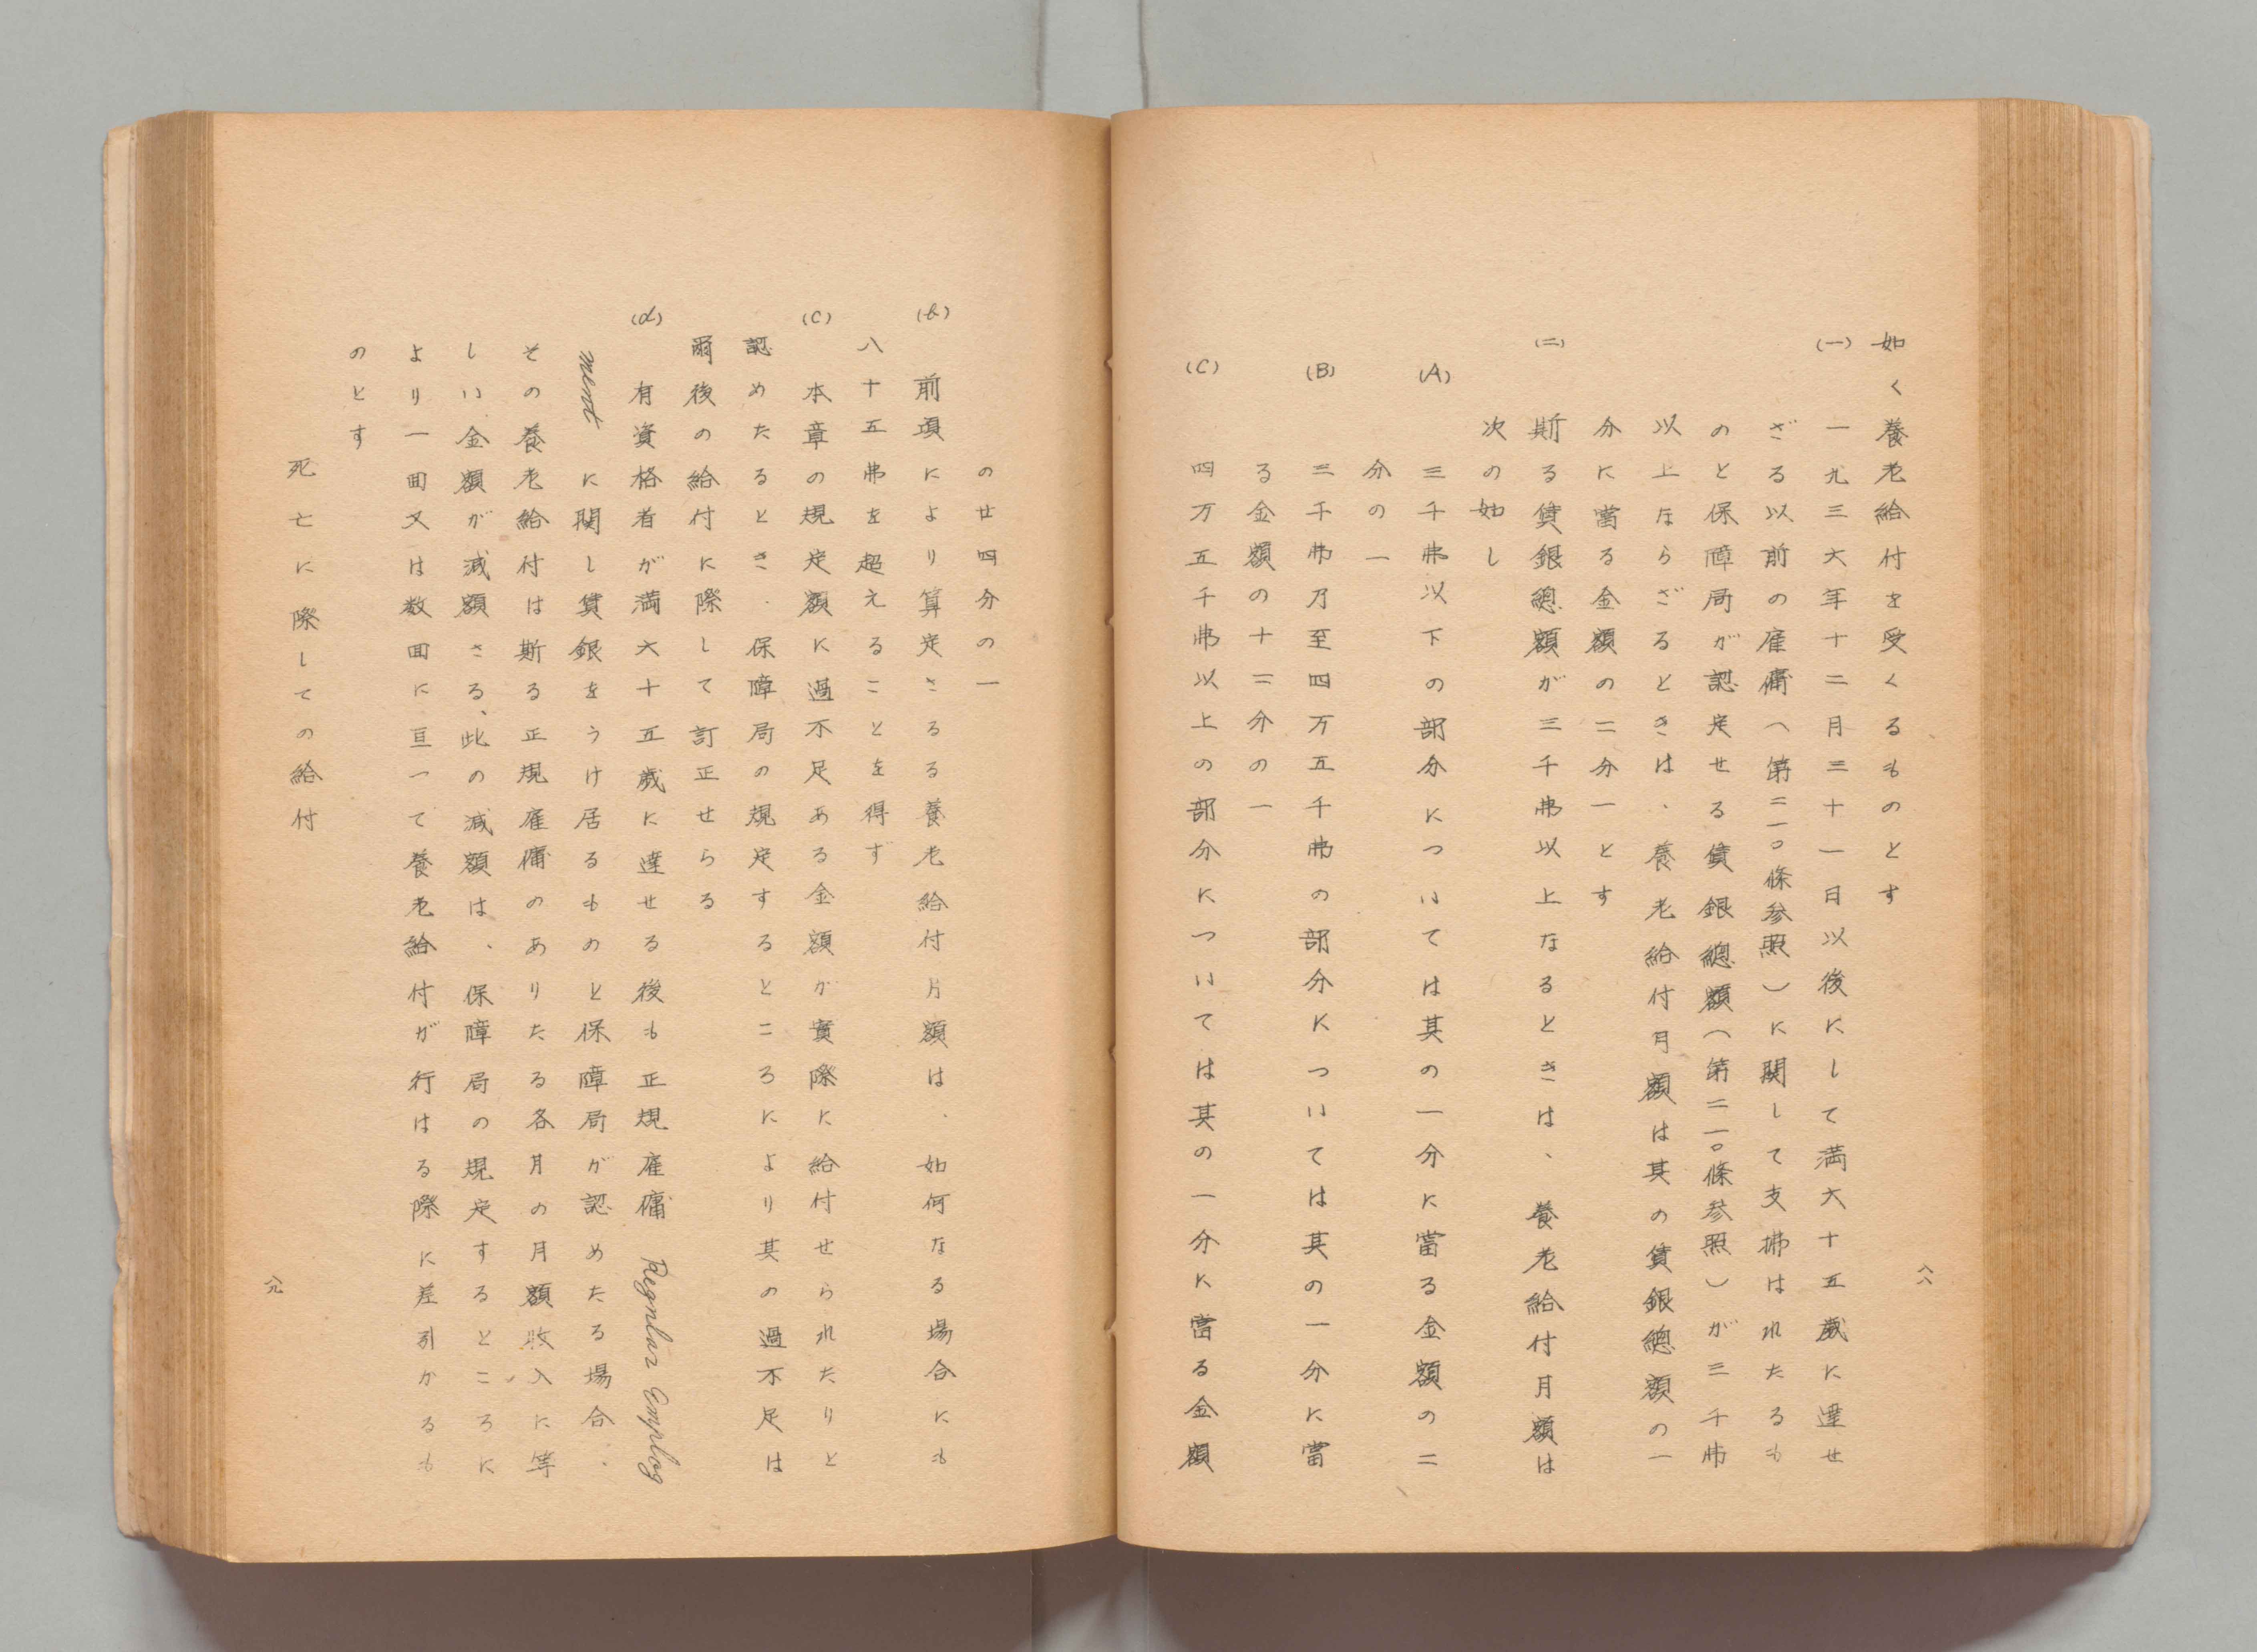 如く養老給付を受くるものとす
(一) 一九三六年十二月三十一日以後にして満六十五歳に達せ
ざる以前の雇傭(第二一〇條参照)に関して支拂はれたるも
のと保障局が認定せる賃銀總額(第二一〇條参照)が三千弗
以上ならざるときは、養老給付月額は其の賃銀總額の一
分に當る金額の二分一とす
(二) 斯る賃銀總額が三千弗以上なるときは、養老給付月額は
次の如し
(A) 三千弗以下の部分については其の一分に當る金額の二
分の一
(B) 三千弗乃至四万五千弗の部分については其の一分に當
る金額の十二分の一
(C) 四万五千弗以上の部分については其の一分に當る金額
八八
の廿四分の一
(b) 前項により算定さるる養老給付月額は、如何なる場合にも
八十五弗を超えることを得ず
(c) 本章の規定額に過不足ある金額が實際に給付せられたりと
認めたるとき、保障局の規定するところにより其の過不足は
爾後の給付に際して訂正せらる
(d) 有資格者が満六十五歳に達せる後も正規雇傭 Regular Employ
ment に関し賃銀をうけ居るものと保障局が認めたる場合、
その養老給付は斯る正規雇傭のありたる各月の月額收入に等
しい金額が減額さる、此の減額は、保障局の規定するところに
より一回又は数回に亘つて養老給付が行はる際に差引かるも
のとす
死亡に際しての給付
八九